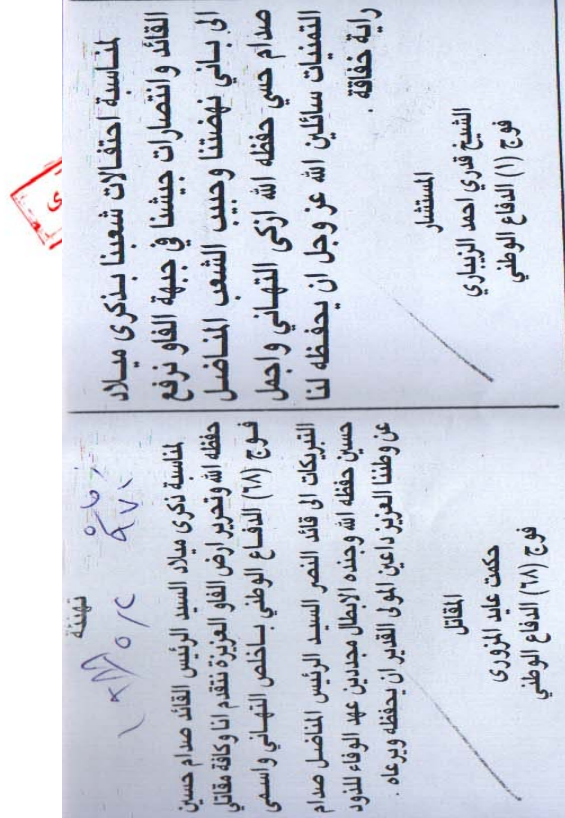 لمناسبة احتفالات شعبنا بذكرى ميلاد
القائد وانتصارات جيشنا في جبهة الفاو نرفع
الى باني نهضتنا وحبيب الشعب المناضل
صدام حسي حفظه الله ازكى التهاني واجمل
التمنيات سائلين الله عز وجل ان يحفظه لنا
راية خفاقة .
المستشار
الشيخ قدري احمد الزيباري
فوج (١) الدفاع الوطني
تهنئة
لمناسبة ذكرى ميلاد السيد الرئيس القائد صدام حسين
حفظه الله وتحرير ارض الفاو العزيزة نتقدم انا وكافة مقاتلي
فوج (٦٨) الدفاع الوطني باخلص التهاني واسمى
التبريكات الى قائد النصر السيد الرئيس المناضل صدام
حسين حفظه الله وجنده الابطال مجددين عهد الوفاء للذود
عن وطننا العزيز داعين المولى القدير ان يحفظه ويرعاه .
المقاتل
حكمت عايد المزورى
فوج (٦٨) الدفاع الوطني